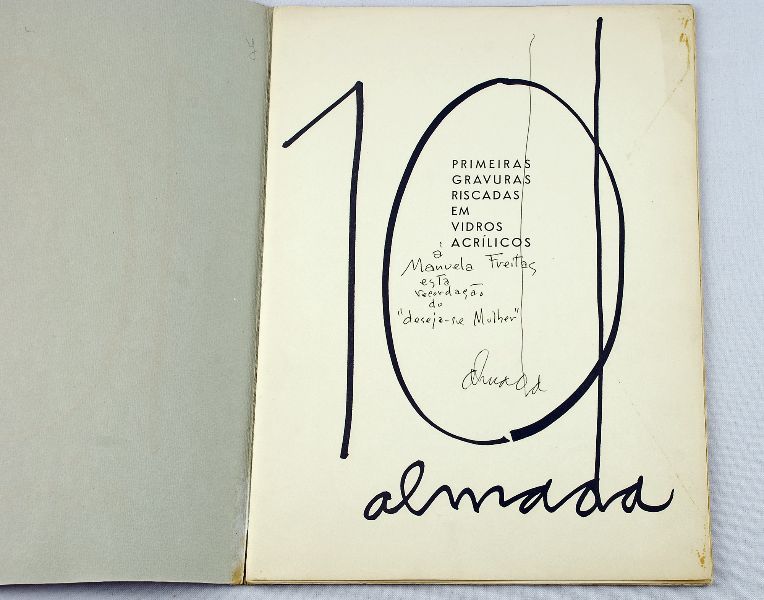 10
PRIMEIRAS
GRAVURAS
RISCADAS
EM
VIDROS
ACRÍLICOS
à
Manuela Freitas
esta
recordação
do
"deseja-se Mulher"
almada
almada